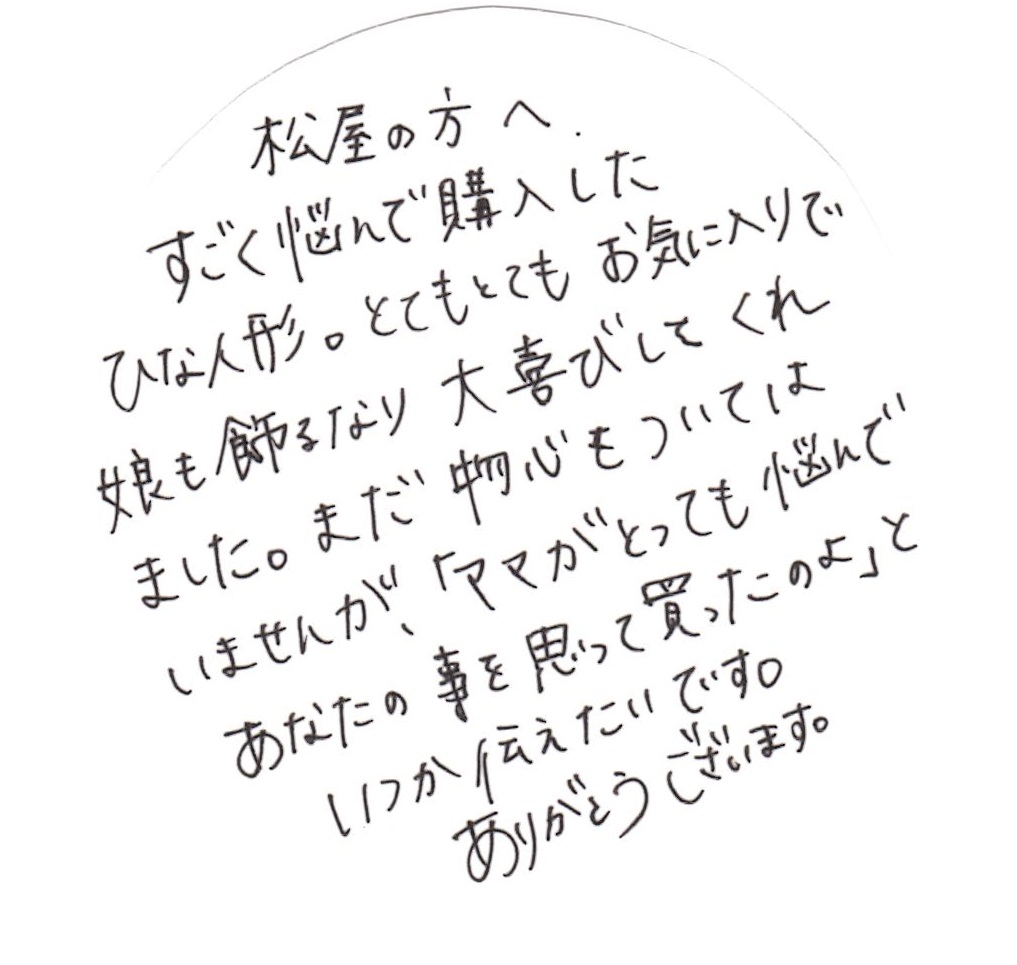 松屋の方へ.
すごく悩んで購入した
ひな人形。とてもとても お気に入りで
娘も飾るなり 大喜びしてくれ
ました。まだ 物心もついては
いませんが、「ママがとっても 悩んで
あなたの事を思って買ったのよ」と
いつか伝えたいです。
ありがとうございます。